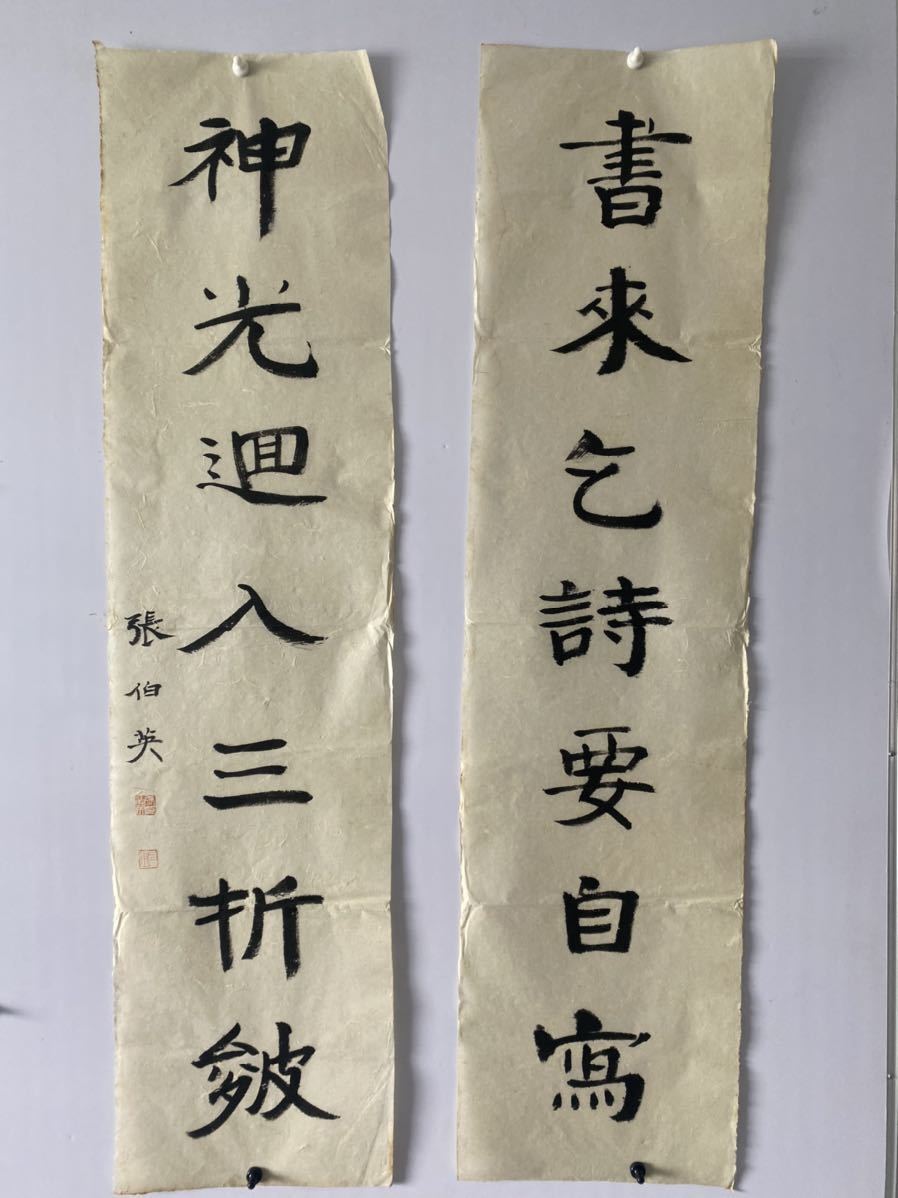 書來乞詩要自寫
神光迴入三折皴
張伯英